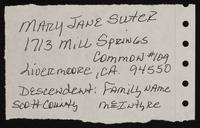 MARY JANE SUTER
1713 MILL SPRINGS
COMMON #109
Livermoore, CA. 94550
Descendent: FAMILY NAME
SCOTT COUNTY McINTYRE